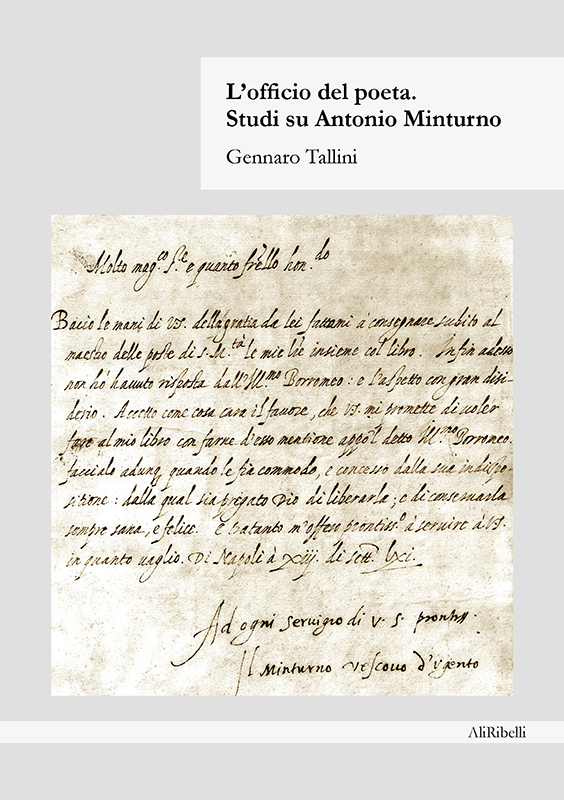 L'officio del poeta.
Studi su Antonio Minturno
Gennaro Tallini
Molto mag.co S.re e quanto fr̃ello hon.do
Bacio le mani di VS. della gratia da lei fattami à consegnare subito al
maestro delle poste di S. M.tà le mie lr̃e insieme col libro. Infin adesso
non hò havuto risposta dall'Ill.mo Borromeo: e l'aspetto con gran disi-
derio. Accetto come cosa cara il favore, che VS. mi promette di voler
fare al mio libro con farne d'esso mentione app̃o l detto Ill.mo Borromeo.
faccialo adunq, quando le fia commodo, e concesso dalla sua indispo-
sitione: dalla qual sia pregato Dio di liberarla; e di conservarla
sempre sana, e felice. E tratanto m'offero prontiss.o à servire à VS.
in quanto vaglio. Di Napoli à xiij. di sett. lxi.
Ad ogni servigio di V. S. prontiss.
Il Minturno vescovo d'Ugento
AliRibelli